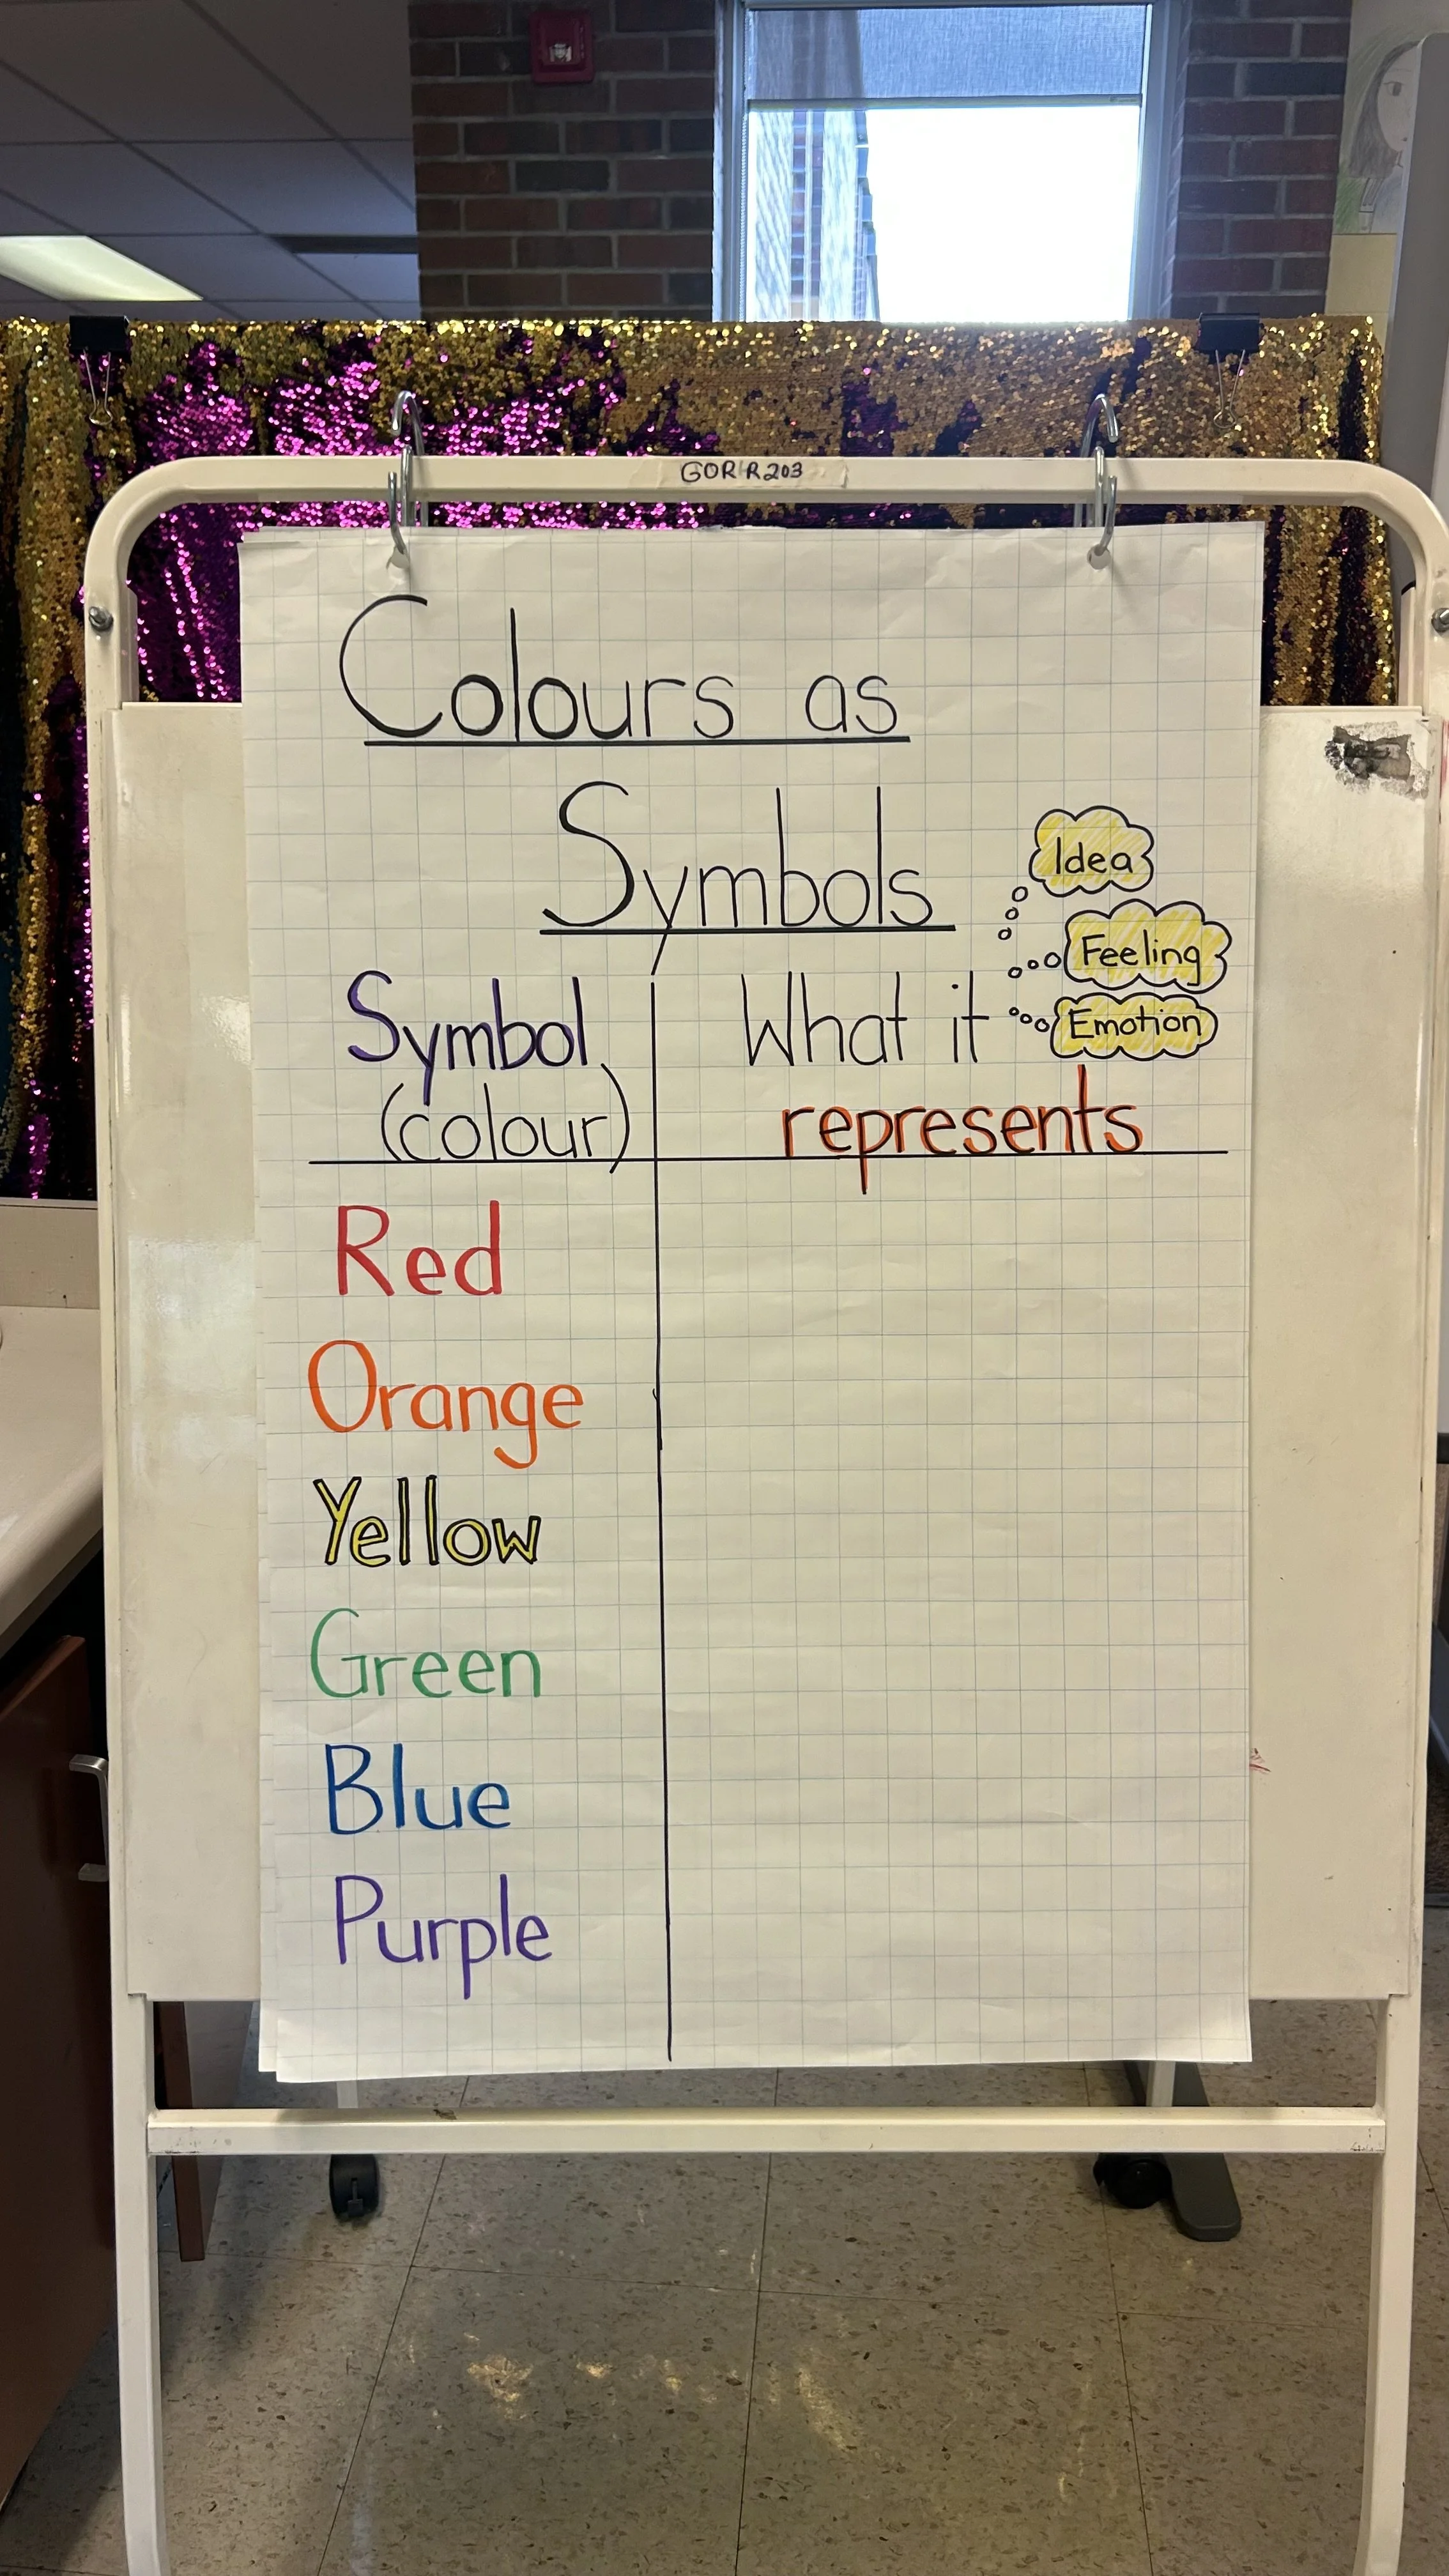 GOR R203
Colours as
Symbols
Idea
Feeling
Emotion
Symbol
(colour)
What it
represents
Red
Orange
Yellow
Green
Blue
Purple